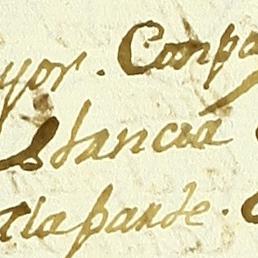 yor. Conpa
stancia
ala parte.